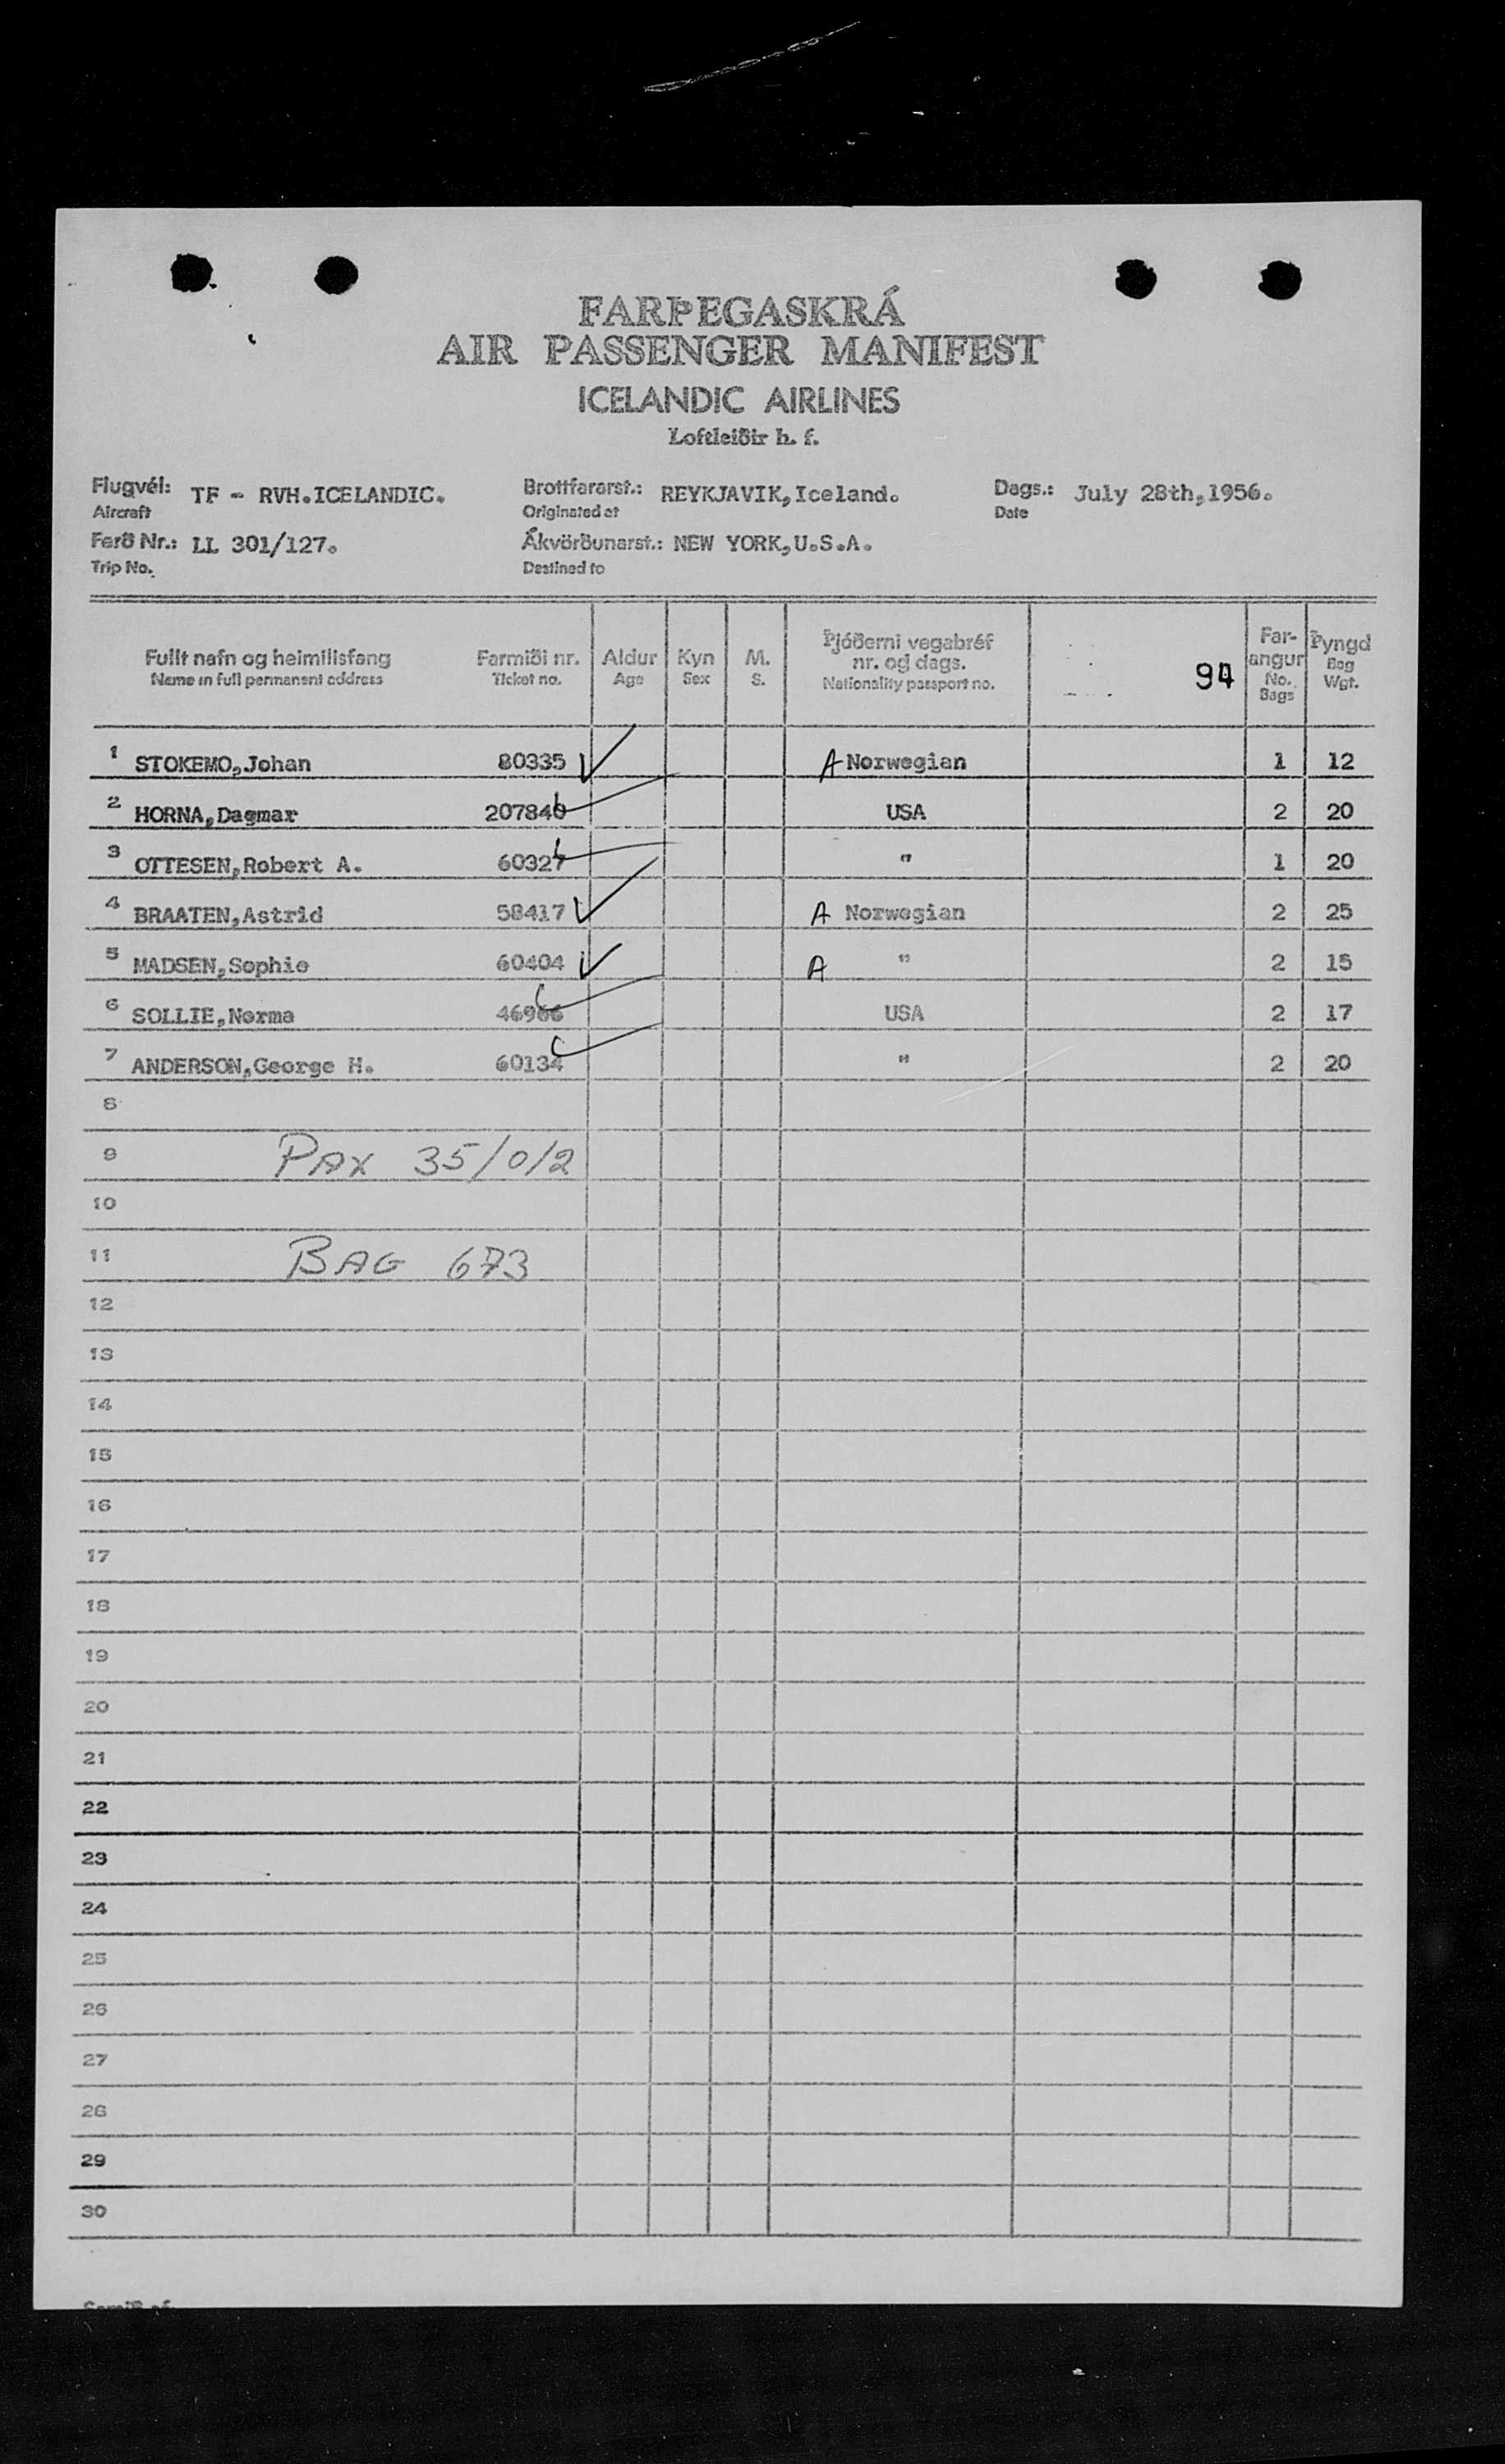 FARÞEGASKRÁ
AIR PASSENGER MANIFEST
ICELANDIC AIRLINES
Loftleiðir h. f.
Flugvél: TF - RVH.ICELANDIC. Brottfararst.: REYKJAVIK,Iceland. Dags.: July 28th,1956.
Aircraft Originated at Date
Ferð Nr.: LL 301/127. Ákvörðunarst.: NEW YORK,U.S.A.
Trip No. Destined to
Fullt nafn og heimilisfang Farmiði nr. Aldur Kyn M. S. Þjóðerni vegabréf nr. og dags. 94 Far-angur Þyngd
Name in full permanent address Ticket no. Age Sex Nationality passport no. No. Bags Bag Wgt.
1 STOKEMO,Johan 80335 A Norwegian 1 12
2 HORNA,Dagmar 207840 USA 2 20
3 OTTESEN,Robert A. 60327 " 1 20
4 BRAATEN,Astrid 58417 A Norwegian 2 25
5 MADSEN,Sophie 60404 A " 2 15
6 SOLLIE,Norma 46966 USA 2 17
7 ANDERSON,George H. 60134 " 2 20
8
9 PAX 35/0/2
10
11 BAG 673
12
13
14
15
16
17
18
19
20
21
22
23
24
25
26
27
28
29
30